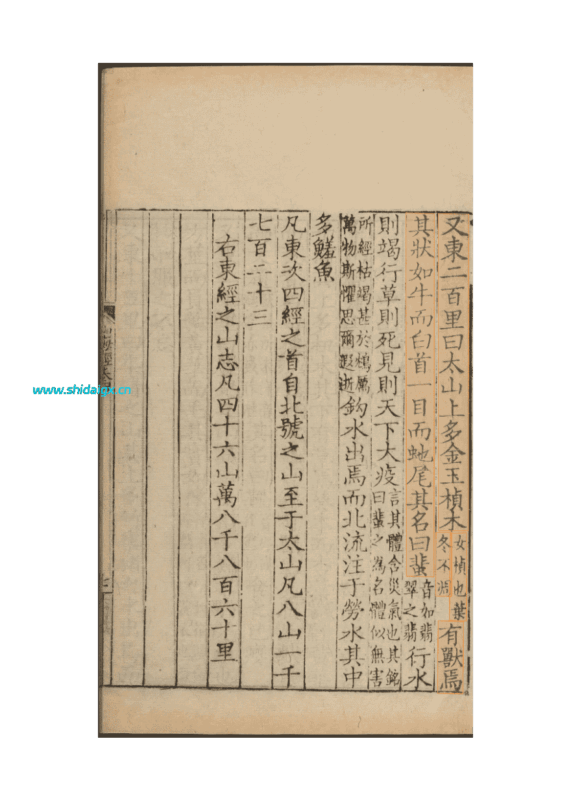 又東二百里曰太山上多金玉楨木女楨也葉冬不凋有獸焉
其狀如牛而白首一目而虵尾其名曰蜚音如翡翠之翡行水
則竭行草則死見則天下大疫言其體含災氣也其銘曰蜚之爲名體似無害
所經枯竭甚於鴆厲萬物斯懼思爾遐逝鈎水出焉而北流注于勞水其中
多鱃魚
凡東次四經之首自北號之山至于太山凡八山一千
七百二十三
右東經之山志凡四十六山萬八千八百六十里
山海經
www.shidaige.cn